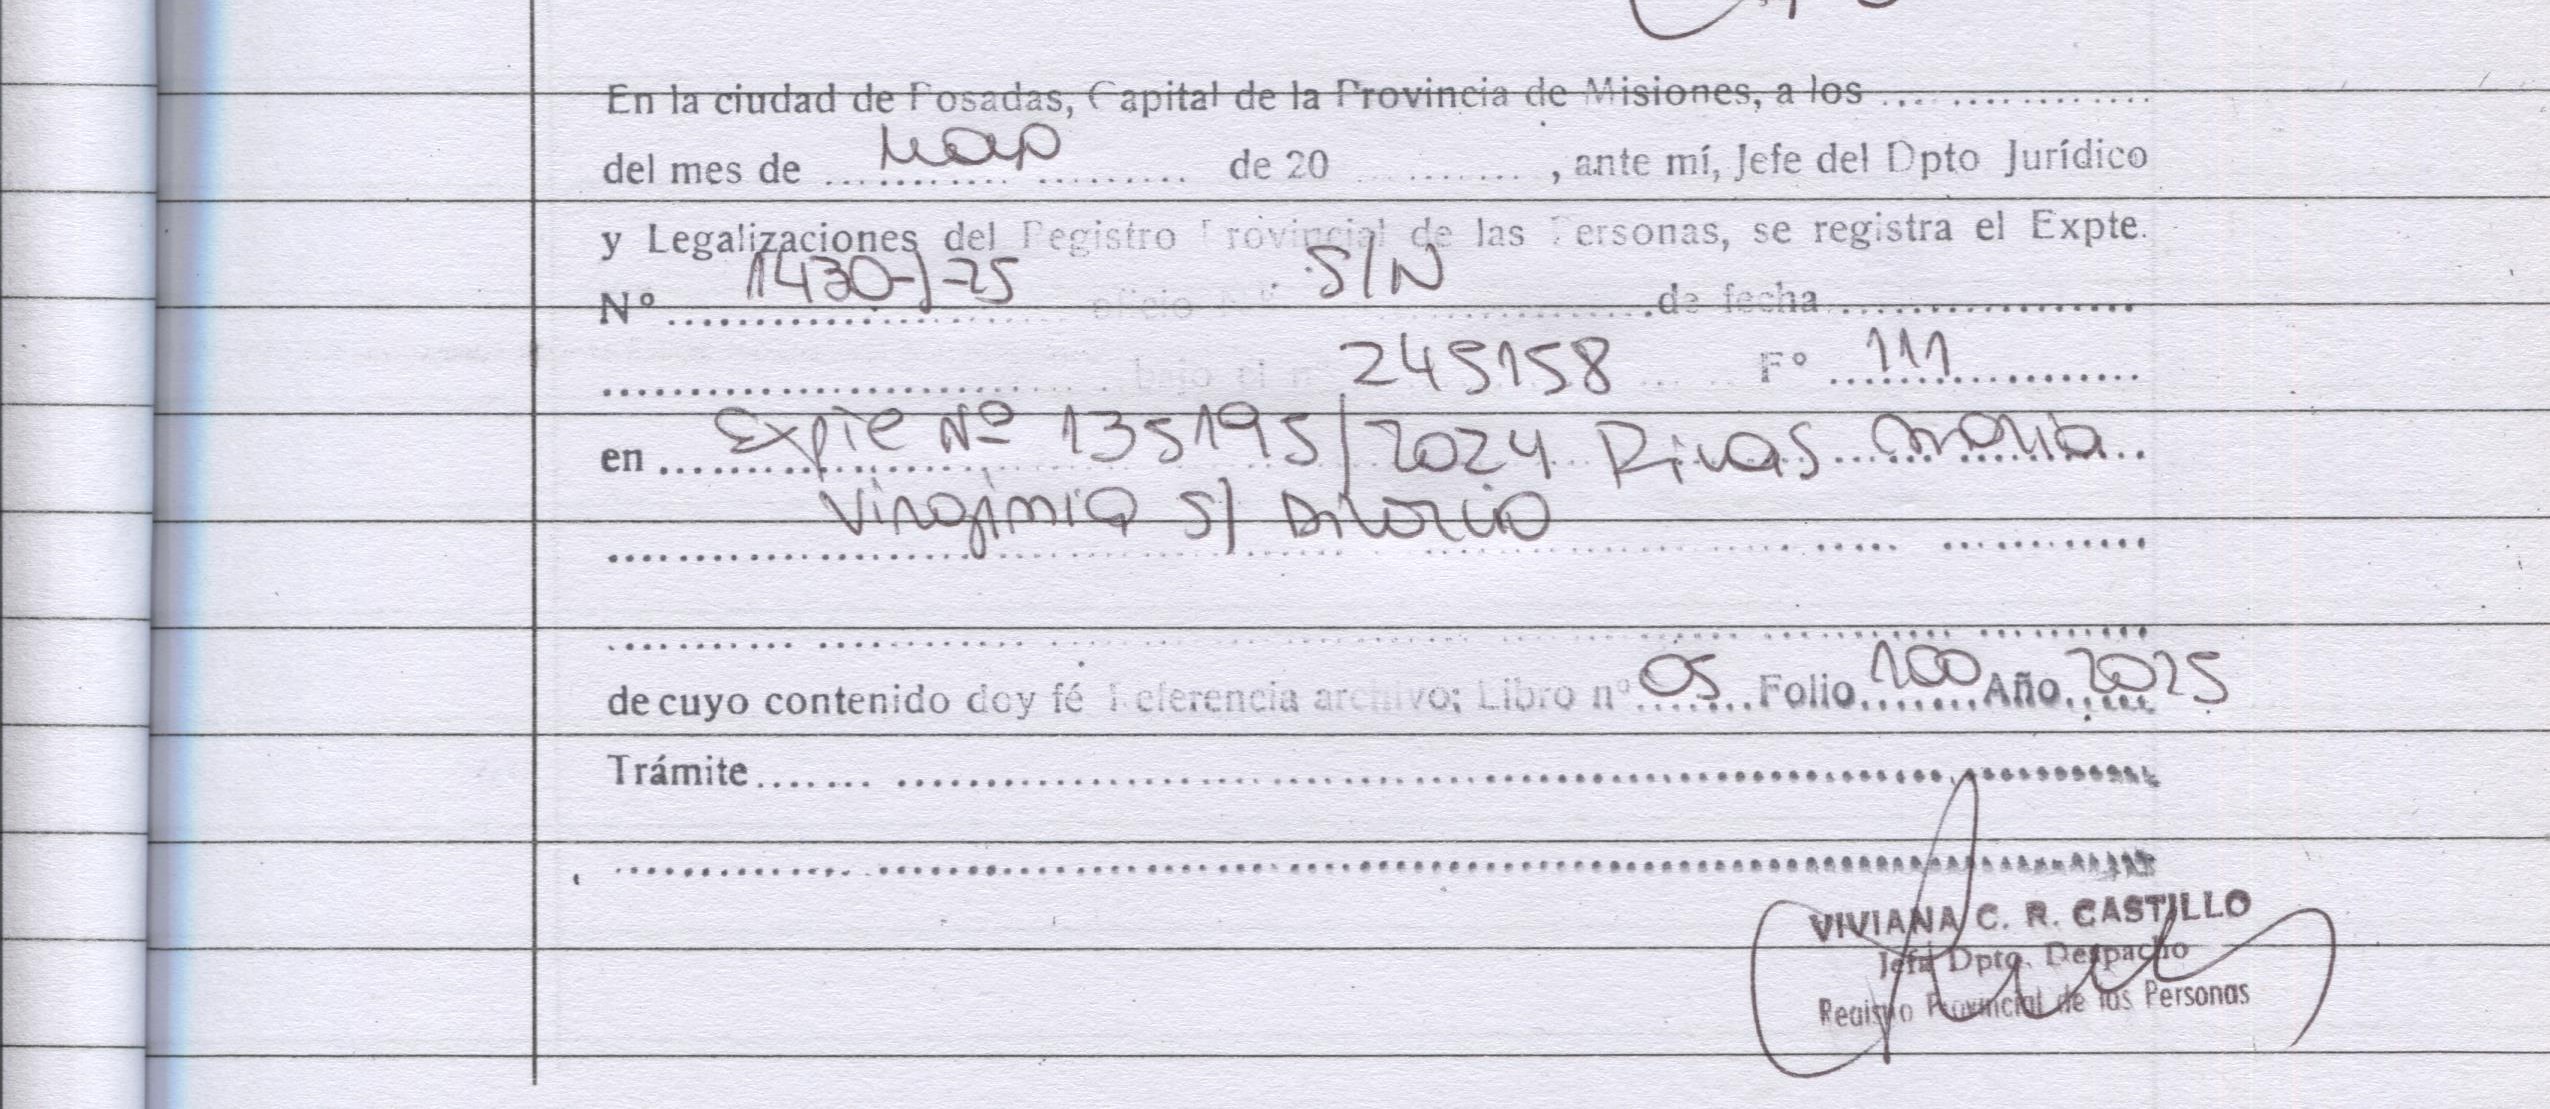 En la ciudad de Posadas, Capital de la Provincia de Misiones, a los ................
del mes de .................... de 20 .........., ante mí, Jefe del Dpto Jurídico
y Legalizaciones del Registro Provincial de las Personas, se registra el Expte.
Nº 1430-J-25 oficio nº S/N de fecha
bajo el nº 245158 Fº 111
en Expte Nº 135195/2024 Rivas Maria
Virginia S/ Divorcio
de cuyo contenido doy fé Referencia archivo: Libro nº 05 Folio 100 Año 2025
Trámite
VIVIANA C. R. CASTILLO
Jefa Dpto. Despacho
Registro Provincial de las Personas